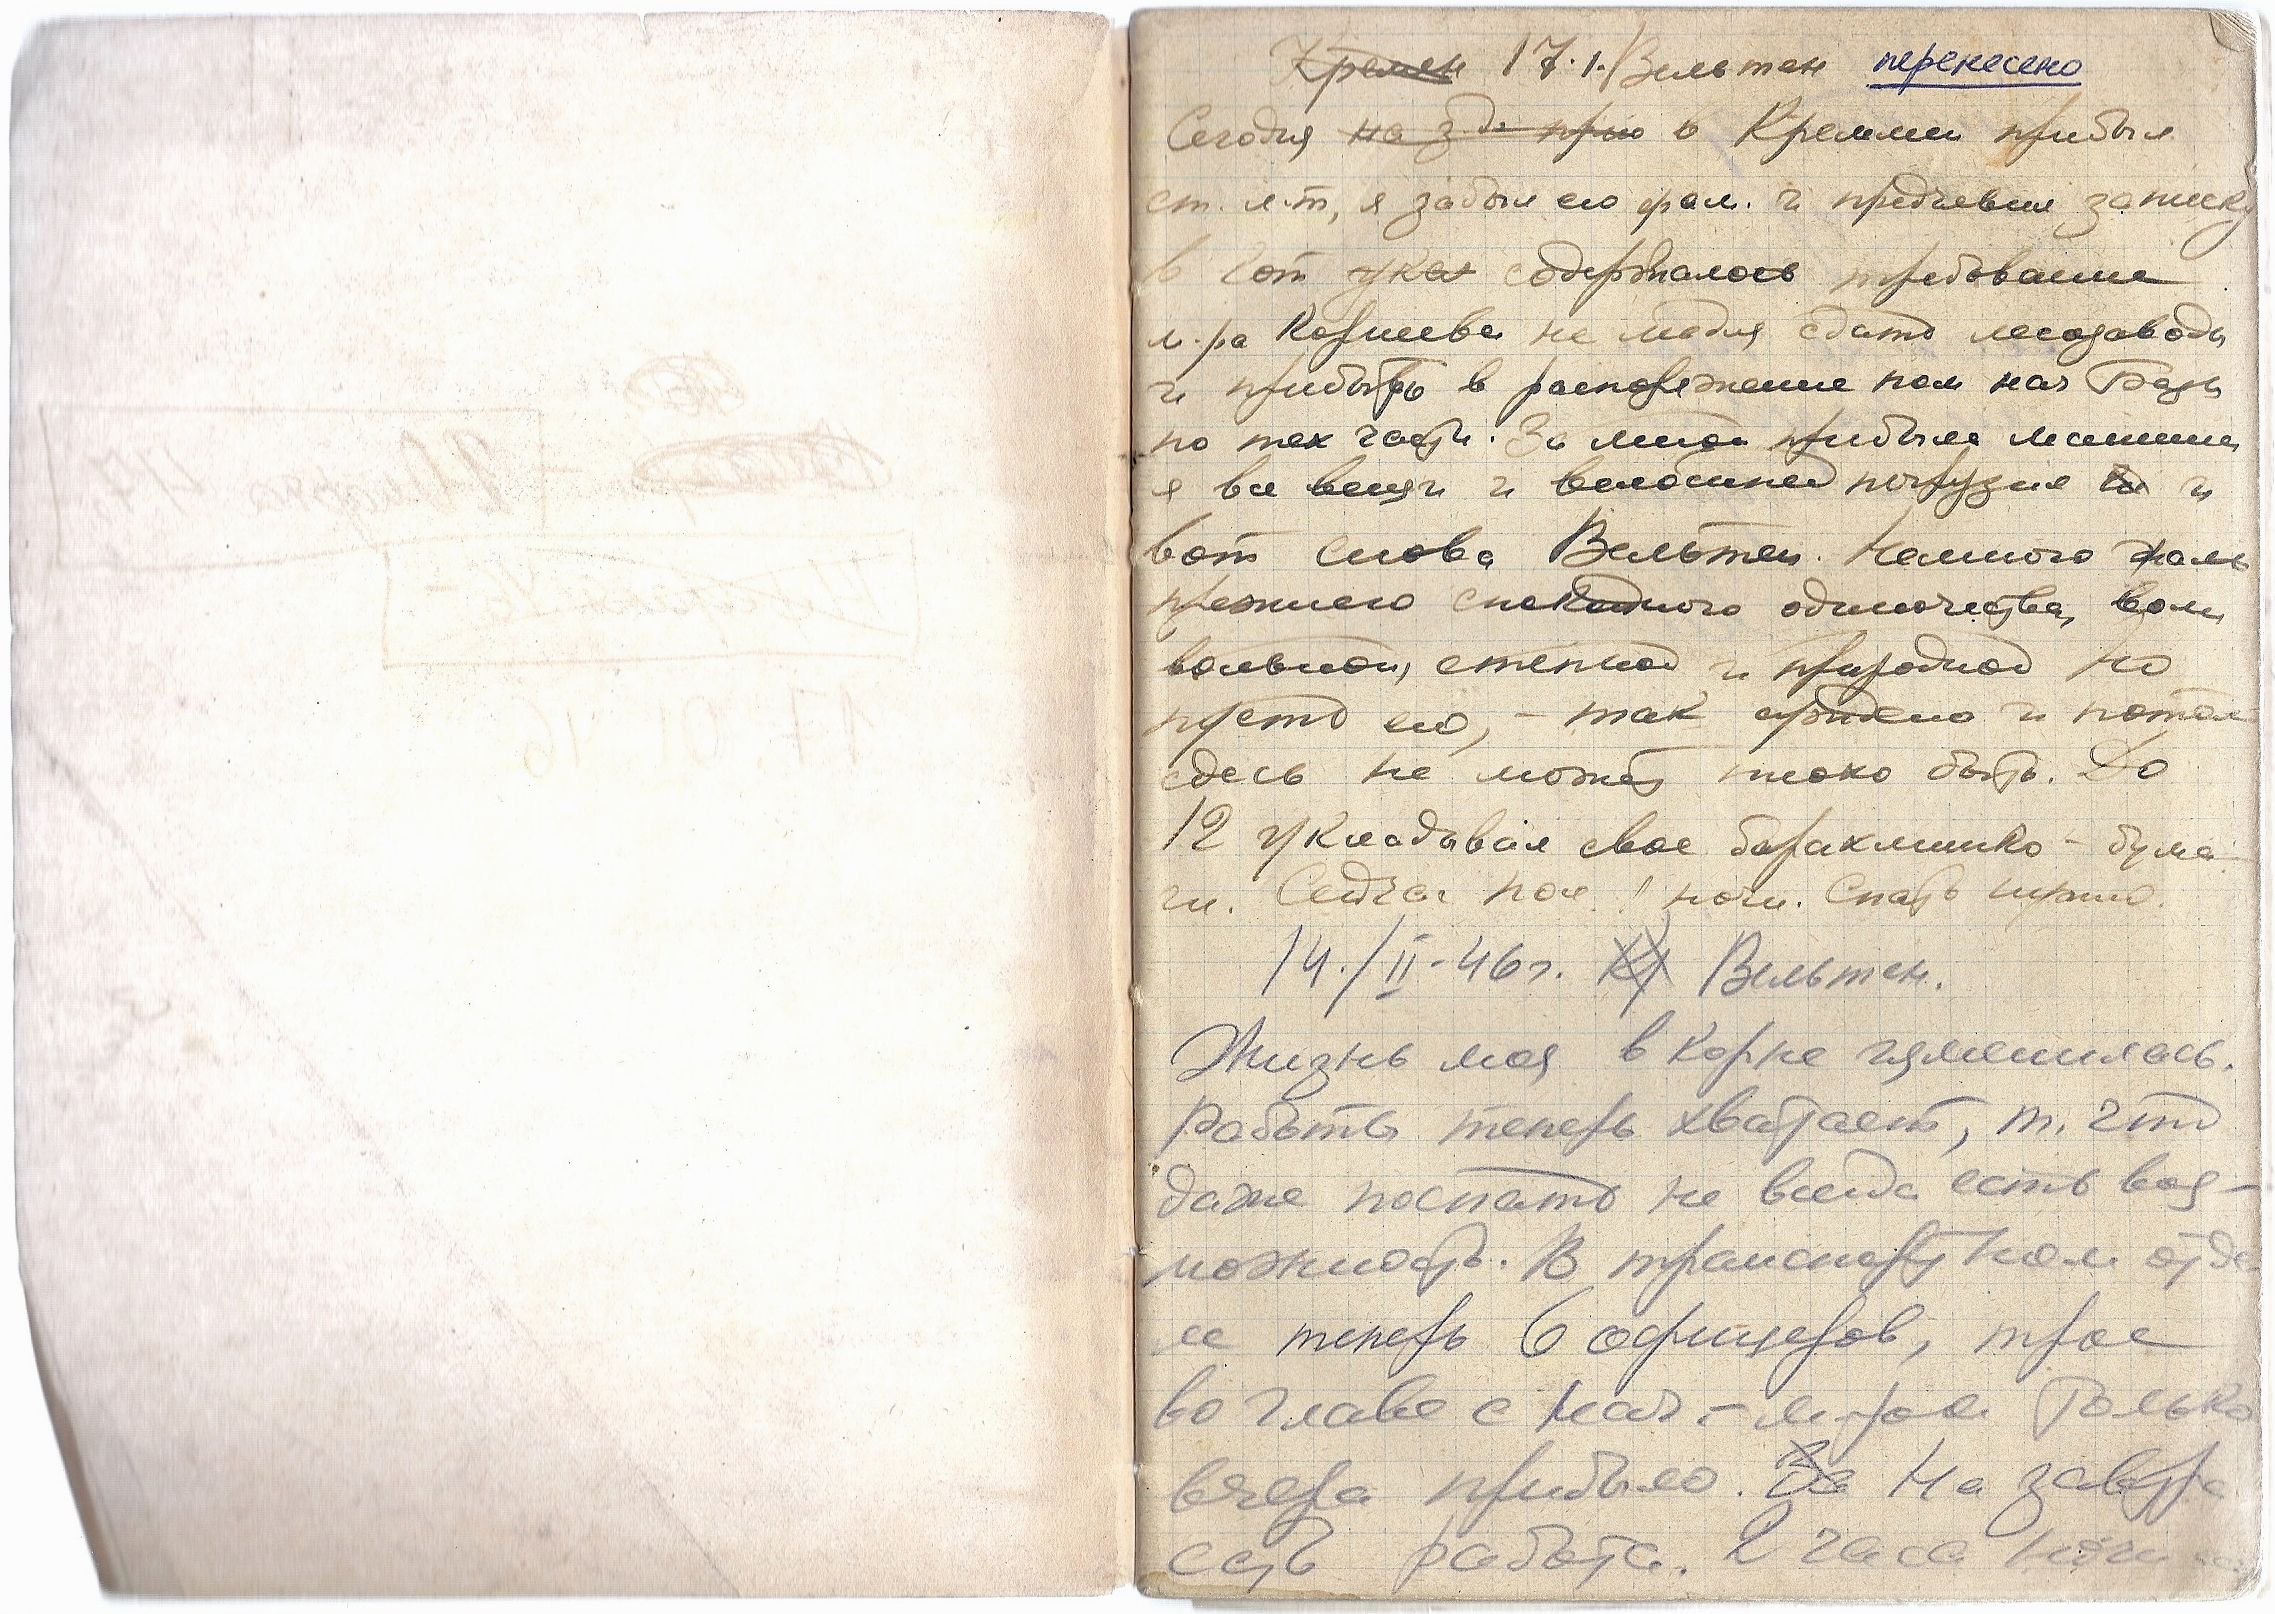 Кремен 17.1. Вельтен перенесено
Сегодня на з де прие в Креммен прибыл
ст. л-т, я забыл его фам. и предъявил записку
в кот указ содержалось требование
м-ра Корнеева не медля сдать лесозаводы
и прибыть в распоряжение пом нач Базы
по тех части. За мной прибыла машина,
я все вещи и велосипед погрузил и
вот снова Вельтен. Немного жаль
прежнего спокойного одиночества,
вольной, степной и природной но
пусть его, – так нужно и потом
здесь не может плохо быть. До
12 укладывал свое барахлишко – бума-
ги. Сейчас пол 1 ночи. Спать нужно.
14./II-46г. Кр Вельтен.
Жизнь моя в корне изменилась.
Работы теперь хватает, т. что
даже поспать не всегда есть воз-
можность. В транспортном отде-
ле теперь 6 офицеров, трое
во главе с нач. – м-ром Только
вчера прибыло. За На завтра
есть работа. 2 часа ночи